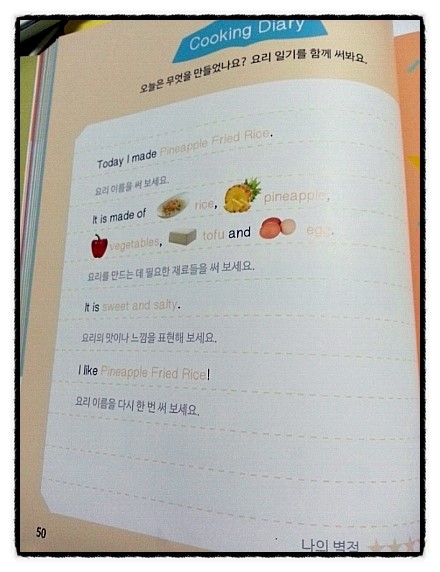 Cooking Diary
오늘은 무엇을 만들었나요? 요리 일기를 함께 써봐요.
Today I made Pineapple Fried Rice.
요리 이름을 써 보세요.
It is made of rice, pineapple,
vegetables, tofu and egg.
요리를 만드는 데 필요한 재료들을 써 보세요.
It is sweet and salty.
요리의 맛이나 느낌을 표현해 보세요.
I like Pineapple Fried Rice!
요리 이름을 다시 한 번 써 보세요.
50
나의 별점